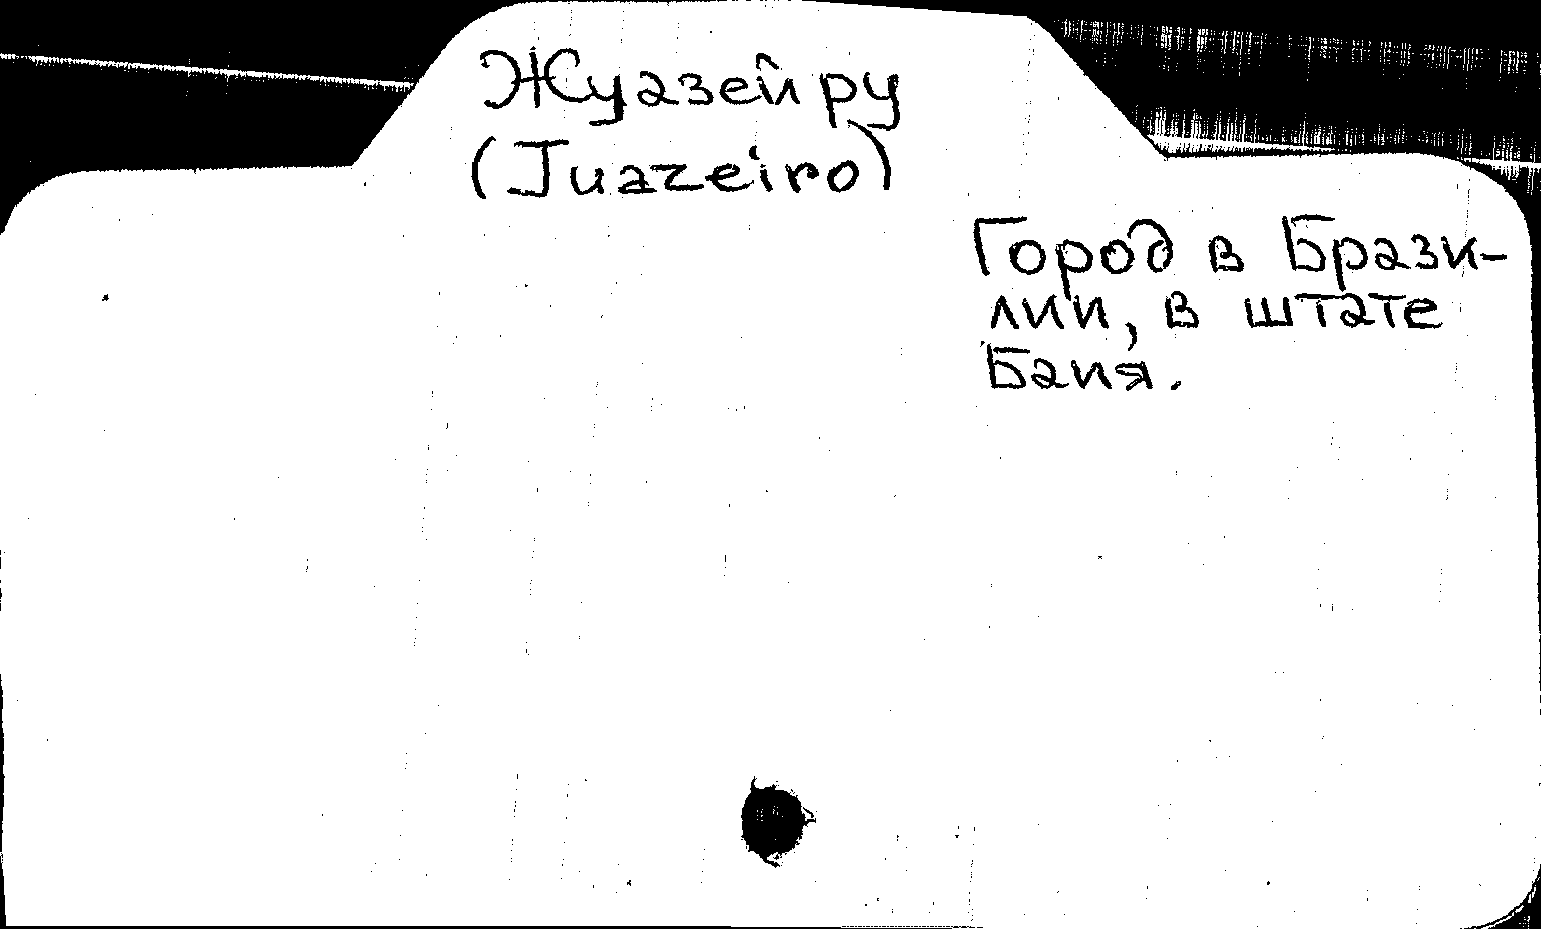 Жуазейру
(Juazeiro)
Город в Брази-
лии, в штате
Баия.